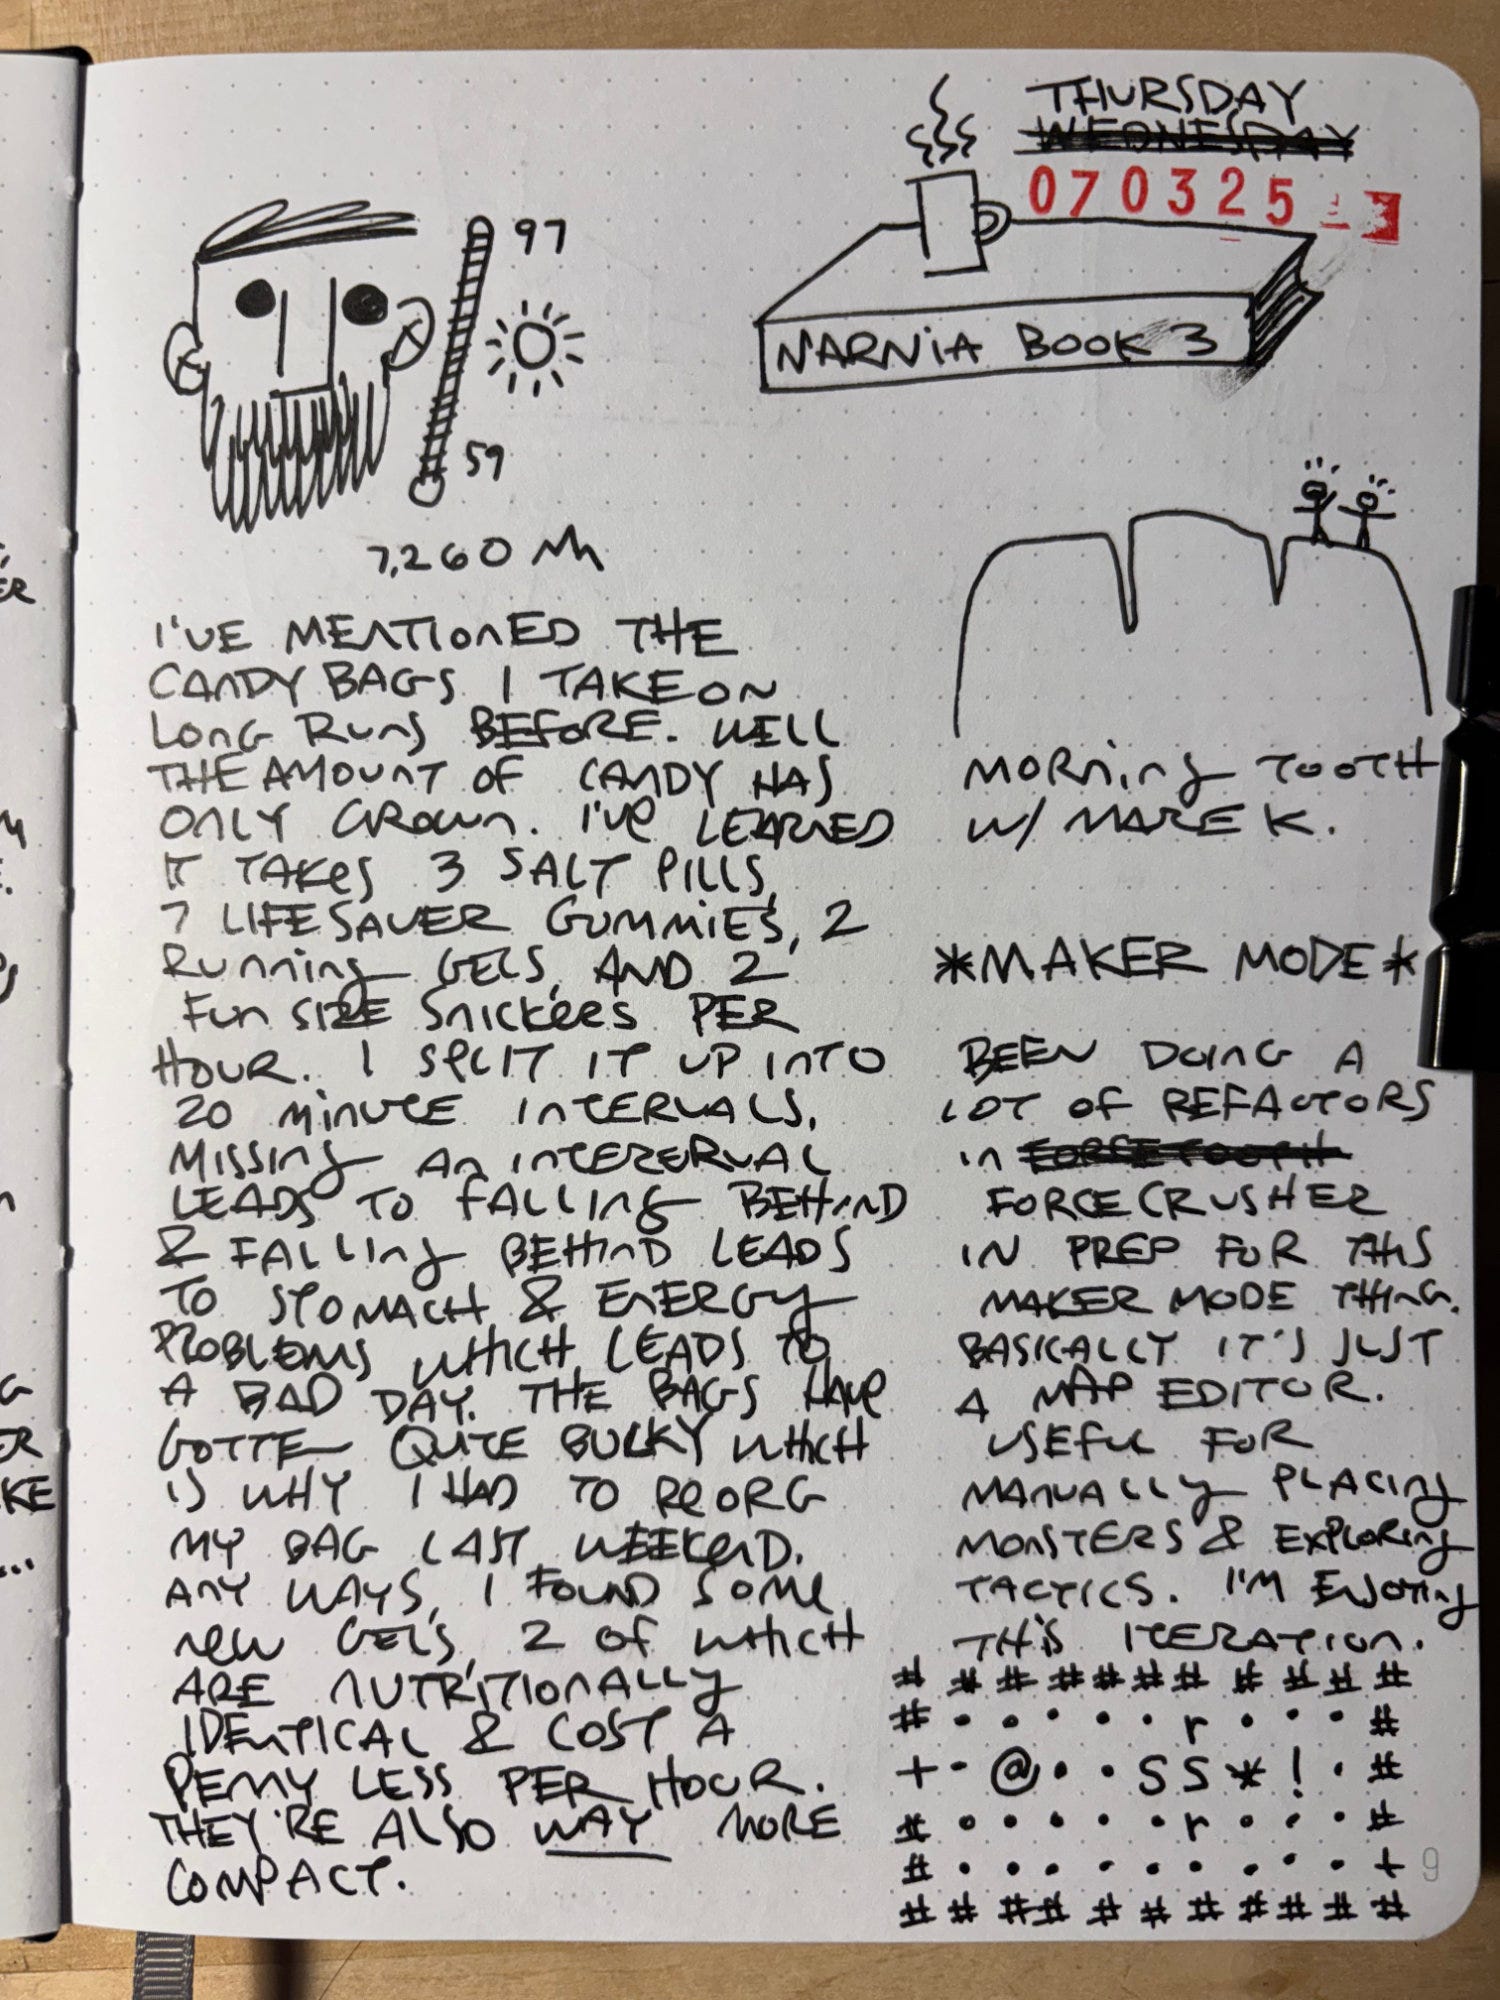 THURSDAY
WEDNESDAY
070325
97
59
NARNIA BOOK 3
7,260
I'VE MENTIONED THE
CANDY BAGS I TAKE ON
LONG RUNS BEFORE. WELL
THE AMOUNT OF CANDY HAS
ONLY GROWN. I'VE LEARNED
IT TAKES 3 SALT PILLS,
7 LIFESAVER GUMMIES, 2
RUNNING GELS, AND 2
FUN SIZE SNICKERS PER
HOUR. I SPLIT IT UP INTO
20 MINUTE INTERVALS.
MISSING AN INTERERVAL
LEADS TO FALLING BEHIND
& FALLING BEHIND LEADS
TO STOMACH & ENERGY
PROBLEMS WHICH LEADS TO
A BAD DAY. THE BAGS HAVE
GOTTEN QUITE BULKY WHICH
IS WHY I HAD TO REORG
MY BAG LAST WEEKEND.
ANY WAYS, I FOUND SOME
NEW GELS, 2 OF WHICH
ARE NUTRITIONALLY
IDENTICAL & COST A
PENNY LESS PER HOUR.
THEY'RE ALSO WAY MORE
COMPACT.
MORNING TOOTH
W/ MAREK.
*MAKER MODE*
BEEN DOING A
LOT OF REFACTORS
IN FORCETOOTH
FORCECRUSHER
IN PREP FOR THIS
MAKER MODE THING.
BASICALLY IT'S JUST
A MAP EDITOR.
USEFUL FOR
MANUALLY PLACING
MONSTERS & EXPLORING
TACTICS. I'M ENJOYING
THIS ITERATION.
# # # # # # # # # # #
# • • • • • r • • • #
+ • @ • • S S * ! • #
# • • • • • r • • • #
# • • • • • • • • • +
# # # # # # # # # # #
9